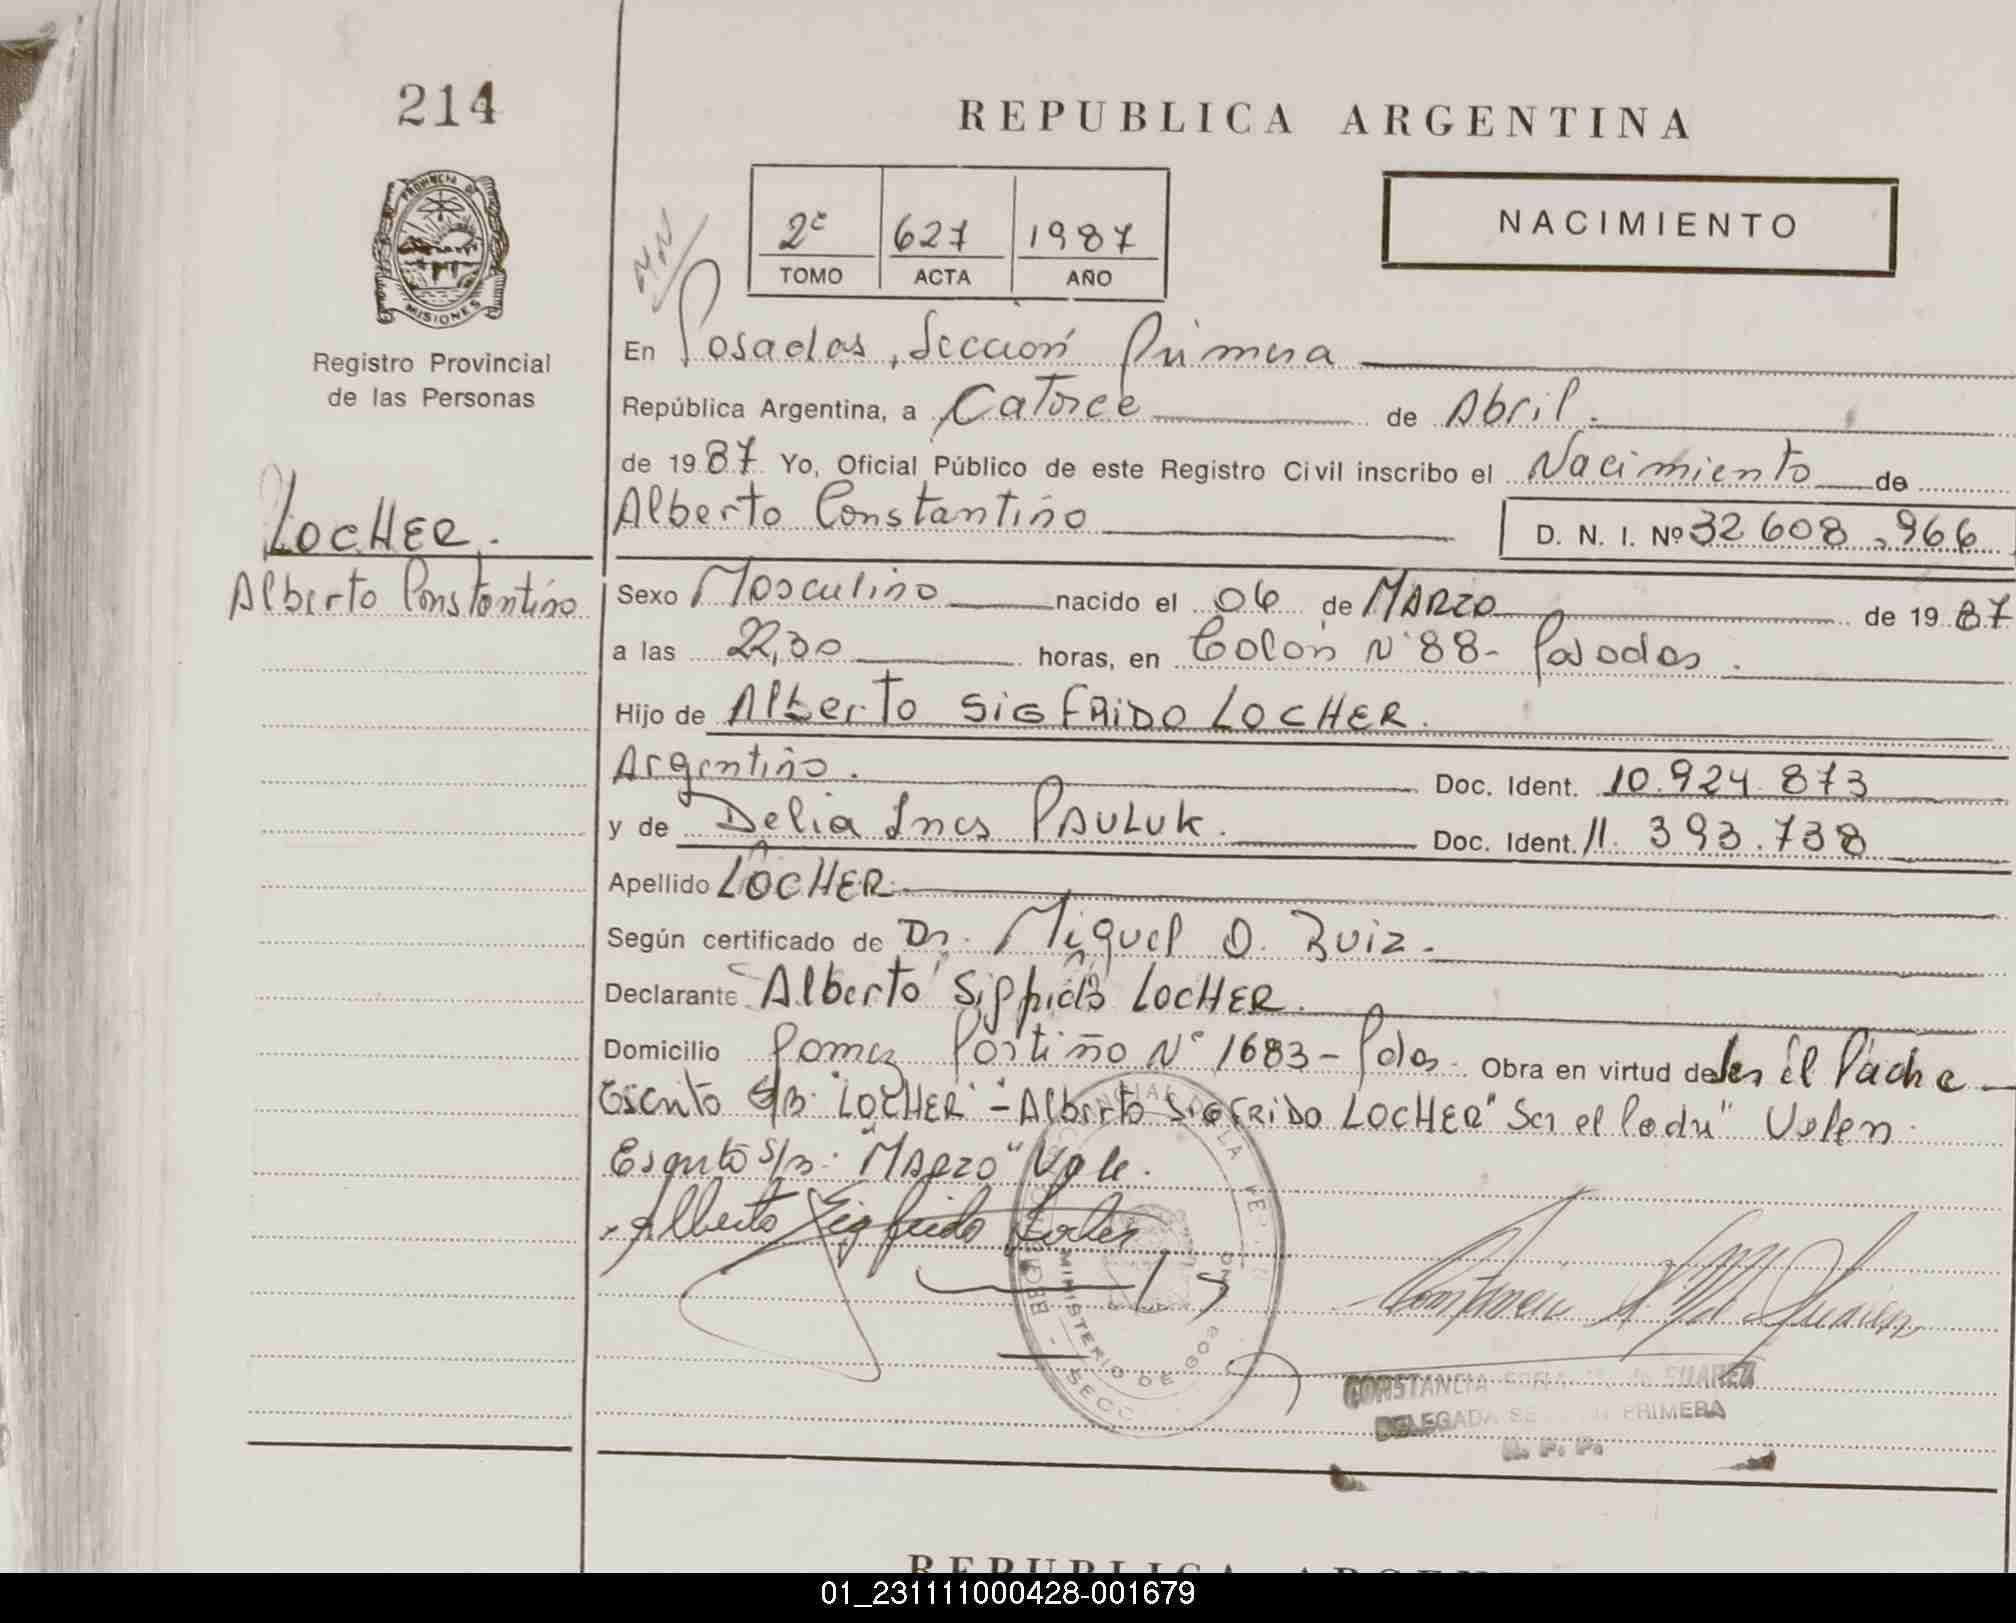 214
PROVINCIA DE
MISIONES
Registro Provincial
de las Personas
LOCHER.
Alberto Constantino
REPUBLICA ARGENTINA
2º 627 1987
TOMO ACTA AÑO
NACIMIENTO
En Posadas, Sección Primera
República Argentina, a Catorce de Abril.
de 1987 Yo, Oficial Público de este Registro Civil inscribo el Nacimiento de
Alberto Constantino D. N. I. Nº 32 608.966
Sexo Masculino nacido el 06 de MARZO de 1987
a las 22,30 horas, en Colón Nº 88- Posadas.
Hijo de Alberto SIGFRIDO LOCHER.
Argentino. Doc. Ident. 10.924.873
y de Delia Ines PAULUK. Doc. Ident. 11.393.738
Apellido LOCHER.
Según certificado de Dr. Miguel O. Ruiz.
Declarante Alberto Sigfrido LOCHER.
Domicilio Gomez Portiño Nº 1683- Pdas. Obra en virtud de Ser el Padre
Escrito S/B. "LOCHER" - Alberto SIGFRIDO LOCHER "Ser el Padre" Valen.
Escrito S/B: "MARZO" Vale.
Alberto Sigfrido Locher
MINISTERIO DE GOB
SECC
CONSTANCIA SUAREZ
DELEGADA SECCION PRIMERA
R. P. P.
REPUBLICA ARGEN
01_231111000428-001679